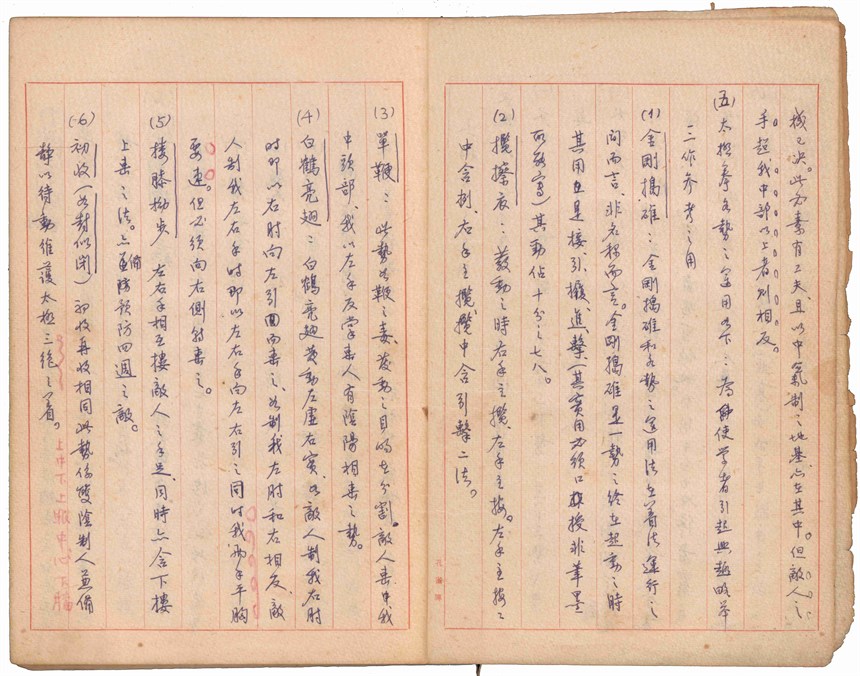 機之決。此必素有工夫、且以中氣制之地基亦在其中。但敵人之
手起我中部以上者則相反。
(五)太極拳各勢之運用如下:為使學者引起興趣略舉
三作參考之用
(1)金剛搗碓:金剛搗碓和各勢之運用法在著法運行之
間而言、非名稱而言。金剛搗碓是一勢之終在起動之時
其用在是接引、攔、進、擊(其實用必須口授非筆墨
所敢寫)其動佔十分之七八。
(2)攬擦衣:發動之時右手主攬、左手主按。左手主按之
中含捌、右手主攬、攬中含引擊二法。
(3)單鞭:此勢如鞭之毒、發動之目的在分割。敵人擊中我
中頭部、我以左手反掌擊人有陰陽相乘之勢。
(4)白鶴亮翅:白鶴亮翅發動左虛右實、如敵人制我右肘
時即以右肘向左引回而擊之、如制我左肘和右相反、敵
人制我左右手時即以左右手向左右引之同時我兩手平胸
要速。但必須向右側射擊之。
(5)摟膝拗步 左右手相互摟敵人之手足、同時亦含下摟
上擊之法。亦備防預防四週之敵。
(6)初收(如封似閉) 初收再收相同此勢係雙陰制人並備
靜以待動維護太極三絕之著。
上中下上